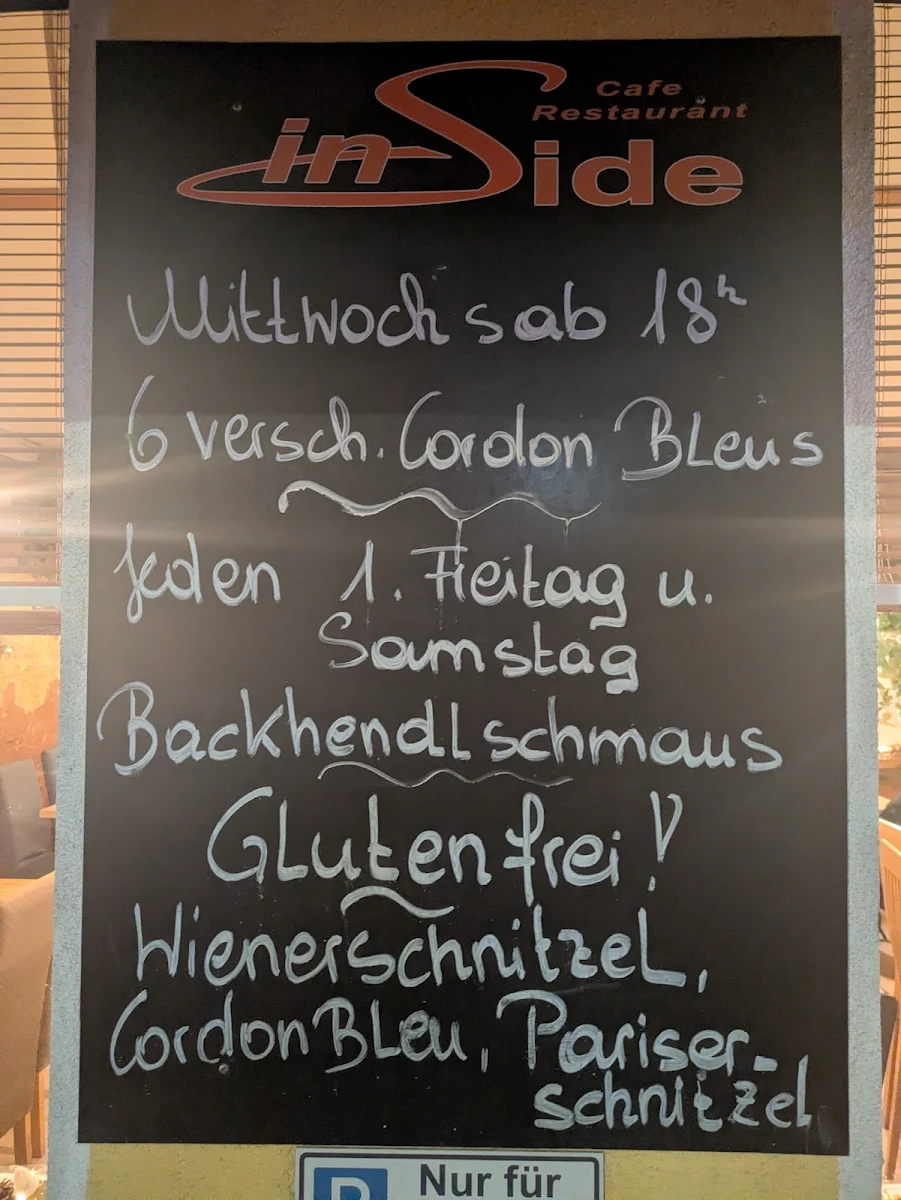 Cafe
Restaurant
inSide
Mittwochs ab 18h
6 versch. Cordon BLeus
Jeden 1. Freitag u.
Samstag
Backhendlschmaus
GLutenfrei!
WienerschnitzeL,
Cordon BLeu, Pariser-
schnitzel
P Nur für